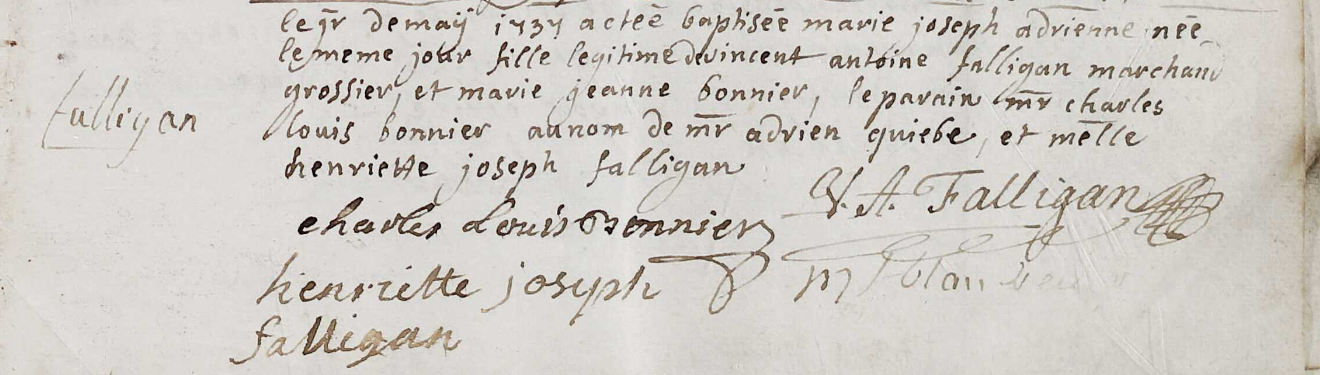 le jr de maÿ 1737 a eté baptisée marie joseph adrienne née
le meme jour fille legitime de vincent antoine falligan marchand
grossier, et marie jeanne bonnier, le parain mr charles
falligan
louis bonnier au nom de mr adrien quiebe, et melle
henriette joseph falligan
V. A. Falligan
charles Louis Bonnier
henriette joseph
falligan